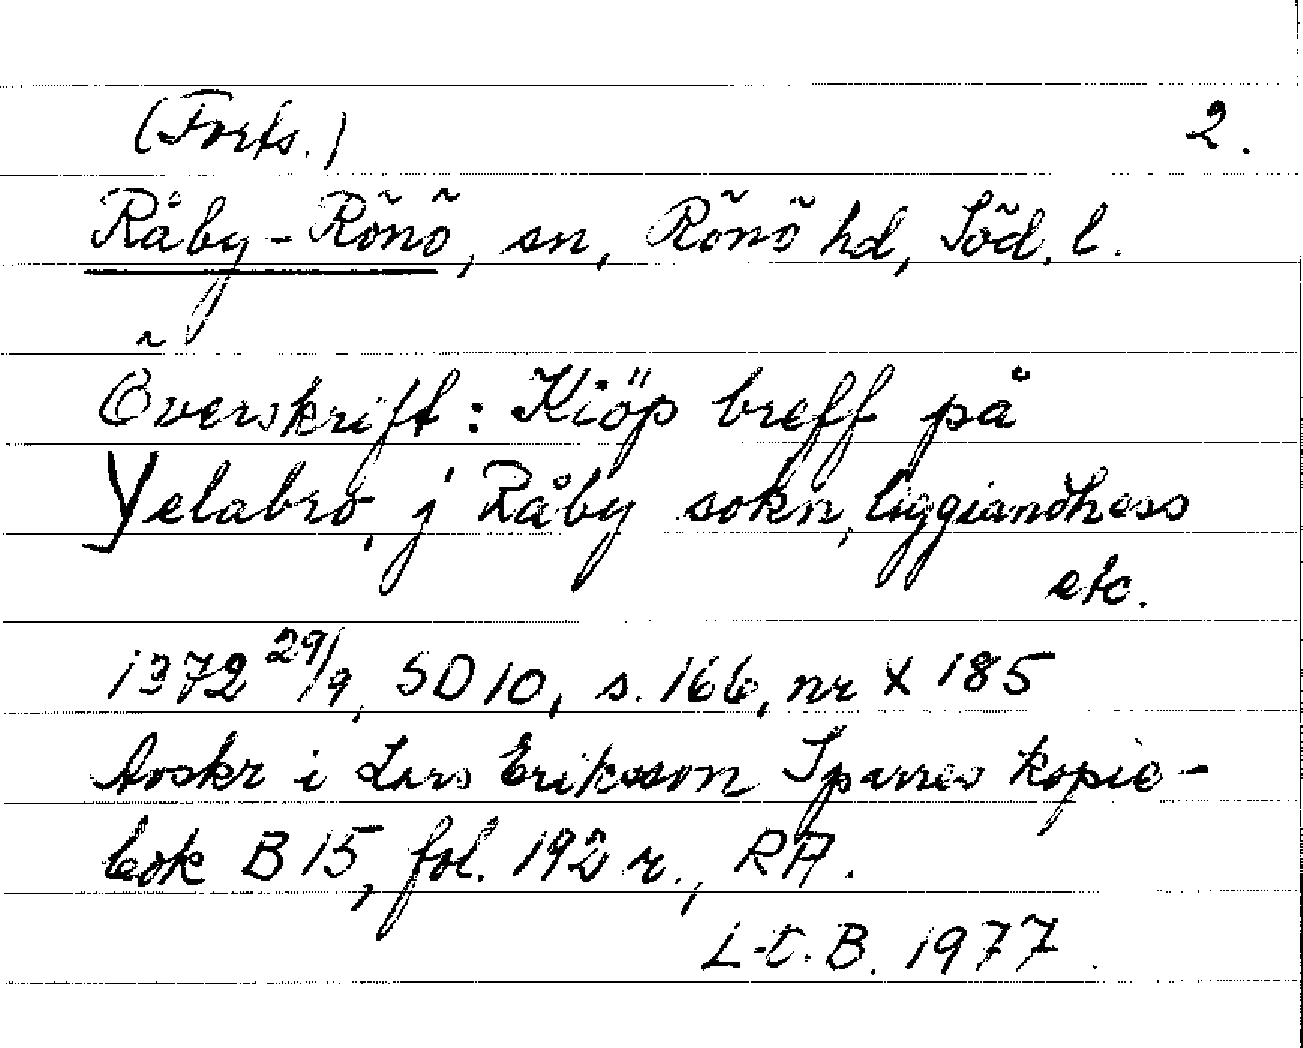 (Forts.) 2.
Råby-Rönö, sn, Rönö hd, Söd. l.
Överskrift: Kiöp breff på
Yelabro, j Råby sokn, liggiandhess
etc.
1372 29/9, SD 10, s. 166, nr X 185
Avskr i Lars Eriksson Sparres kopie-
bok B 15, fol. 192 r., RA.
L-t. B. 1977.